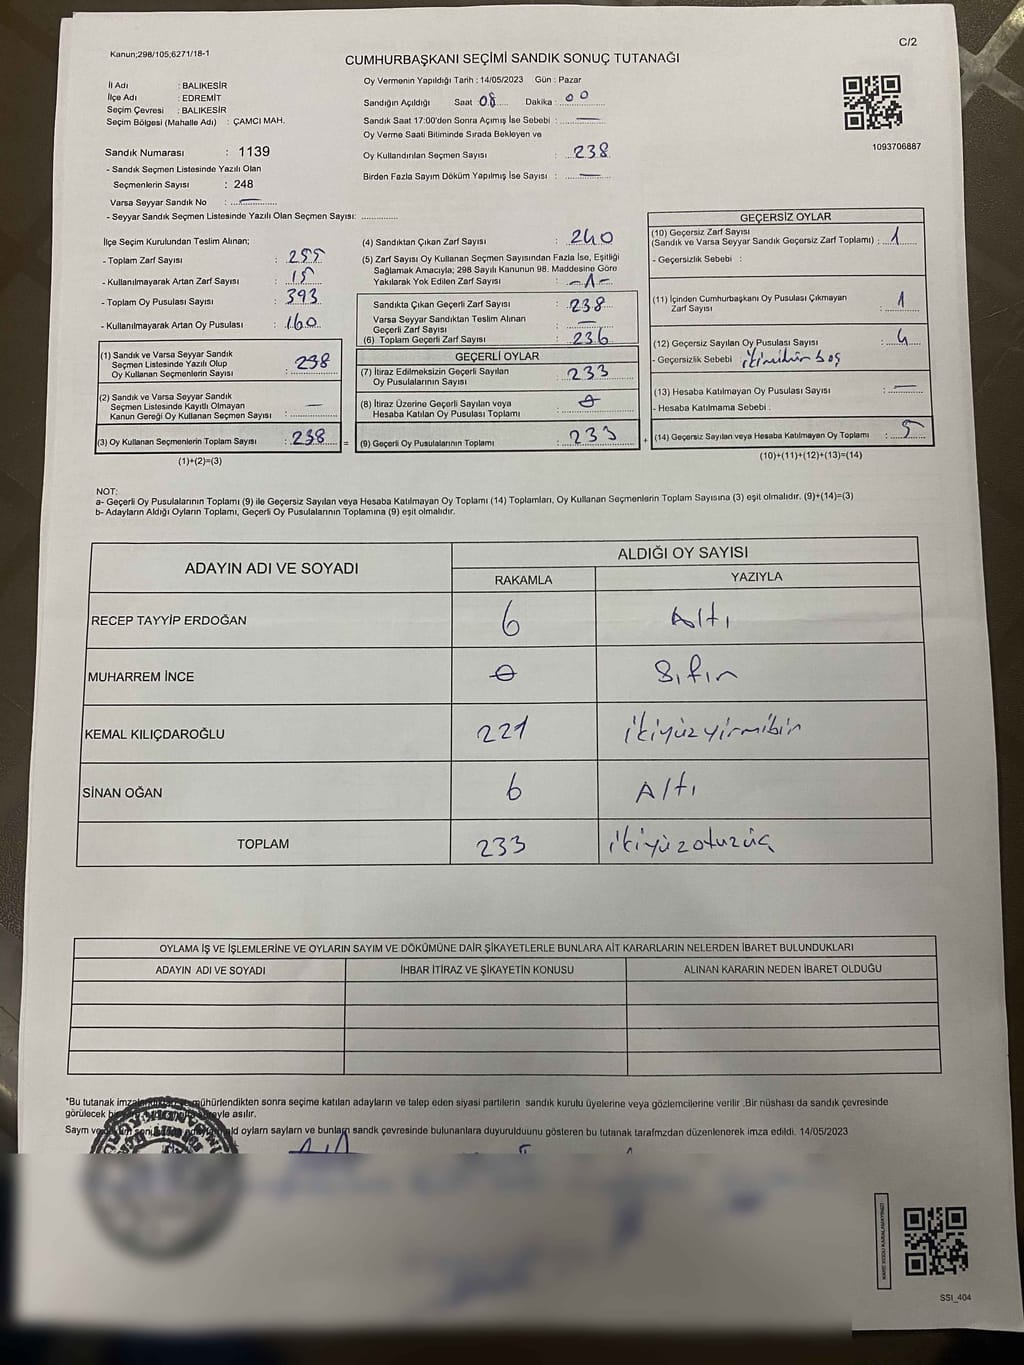 Kanun;298/105;6271/18-1
C/2
CUMHURBAŞKANI SEÇİMİ SANDIK SONUÇ TUTANAĞI
İl Adı : BALIKESİR
İlçe Adı : EDREMİT
Seçim Çevresi : BALIKESİR
Seçim Bölgesi (Mahalle Adı) : ÇAMCI MAH.
Sandık Numarası : 1139
- Sandık Seçmen Listesinde Yazılı Olan
Seçmenlerin Sayısı : 248
Varsa Seyyar Sandık No :
- Seyyar Sandık Seçmen Listesinde Yazılı Olan Seçmen Sayısı:
Oy Vermenin Yapıldığı Tarih : 14/05/2023 Gün : Pazar
Sandığın Açıldığı Saat 08 Dakika : 00
Sandık Saat 17:00'den Sonra Açımış İse Sebebi : —
Oy Verme Saati Bitiminde Sırada Bekleyen ve
Oy Kullandırılan Seçmen Sayısı : 238
Birden Fazla Sayım Döküm Yapılmış İse Sayısı : —
1093706887
İlçe Seçim Kurulundan Teslim Alınan;
- Toplam Zarf Sayısı : 255
- Kullanılmayarak Artan Zarf Sayısı : 15
- Toplam Oy Pusulası Sayısı : 393
- Kullanılmayarak Artan Oy Pusulası : 160
(1) Sandık ve Varsa Seyyar Sandık
Seçmen Listesinde Yazılı Olup
Oy Kullanan Seçmenlerin Sayısı : 238
(2) Sandık ve Varsa Seyyar Sandık
Seçmen Listesinde Kayıtlı Olmayan
Kanun Gereği Oy Kullanan Seçmen Sayısı : —
(3) Oy Kullanan Seçmenlerin Toplam Sayısı : 238
(1)+(2)=(3)
(4) Sandıktan Çıkan Zarf Sayısı : 240
(5) Zarf Sayısı Oy Kullanan Seçmen Sayısından Fazla İse, Eşitliği
Sağlamak Amacıyla; 298 Sayılı Kanunun 98. Maddesine Göre
Yakılarak Yok Edilen Zarf Sayısı : -1-
Sandıkta Çıkan Geçerli Zarf Sayısı : 238
Varsa Seyyar Sandıktan Teslim Alınan
Geçerli Zarf Sayısı : —
(6) Toplam Geçerli Zarf Sayısı : 236
GEÇERLİ OYLAR
(7) İtiraz Edilmeksizin Geçerli Sayılan
Oy Pusulalarının Sayısı : 233
(8) İtiraz Üzerine Geçerli Sayılan veya
Hesaba Katılan Oy Pusulası Toplamı : 0
= (9) Geçerli Oy Pusulalarının Toplamı : 233
GEÇERSİZ OYLAR
(10) Geçersiz Zarf Sayısı
(Sandık ve Varsa Seyyar Sandık Geçersiz Zarf Toplamı) : 1
- Geçersizlik Sebebi :
(11) İçinden Cumhurbaşkanı Oy Pusulası Çıkmayan
Zarf Sayısı : 1
(12) Geçersiz Sayılan Oy Pusulası Sayısı : 4
- Geçersizlik Sebebi : boş
(13) Hesaba Katılmayan Oy Pusulası Sayısı : —
- Hesaba Katılmama Sebebi :
+ (14) Geçersiz Sayılan veya Hesaba Katılmayan Oy Toplamı : 5
(10)+(11)+(12)+(13)=(14)
NOT:
a- Geçerli Oy Pusulalarının Toplamı (9) ile Geçersiz Sayılan veya Hesaba Katılmayan Oy Toplamı (14) Toplamları, Oy Kullanan Seçmenlerin Toplam Sayısına (3) eşit olmalıdır. (9)+(14)=(3)
b- Adayların Aldığı Oyların Toplamı, Geçerli Oy Pusulalarının Toplamına (9) eşit olmalıdır.
ADAYIN ADI VE SOYADI
ALDIĞI OY SAYISI
RAKAMLA YAZIYLA
RECEP TAYYİP ERDOĞAN 6 Altı
MUHARREM İNCE 0 Sıfır
KEMAL KILIÇDAROĞLU 221 ikiyüzyirmibir
SİNAN OĞAN 6 Altı
TOPLAM 233 ikiyüzotuzüç
OYLAMA İŞ VE İŞLEMLERİNE VE OYLARIN SAYIM VE DÖKÜMÜNE DAİR ŞİKAYETLERLE BUNLARA AİT KARARLARIN NELERDEN İBARET BULUNDUKLARI
ADAYIN ADI VE SOYADI İHBAR İTİRAZ VE ŞİKAYETİN KONUSU ALINAN KARARIN NEDEN İBARET OLDUĞU
*Bu tutanak mühürlendikten sonra seçime katılan adayların ve talep eden siyasi partilerin sandık kurulu üyelerine veya gözlemcilerine verilir .Bir nüshası da sandık çevresinde
görülecek asılır.
Sayım oylarn saylarn ve bunlarn sandk çevresinde bulunanlara duyurulduunu gösteren bu tutanak tarafmzdan düzenlenerek imza edildi. 14/05/2023
SSİ_404